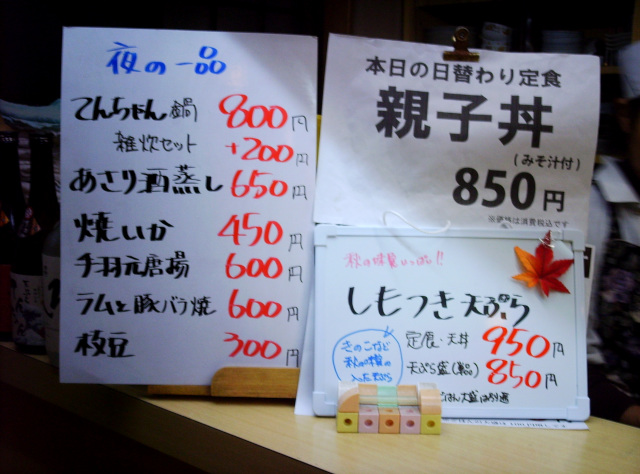 夜の一品
てんちゃん鍋 800円
雑炊セット +200円
あさり酒蒸し 650円
焼いか 450円
手羽元唐揚 600円
ラムと豚バラ焼 600円
枝豆 300円
本日の日替わり定食
親子丼
(みそ汁付)
850円
※価格は消費税込です
秋の味覚いっぱい!!
しもつき天ぷら
定食・天丼 950円
天ぷら盛(単品) 850円
きのこなど
秋の味覚の
入った天ぷら